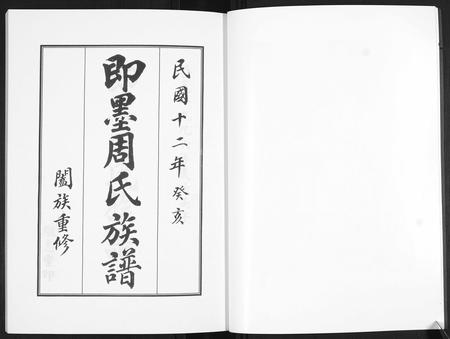 民國十二年癸亥
即墨周氏族譜
闔族重修